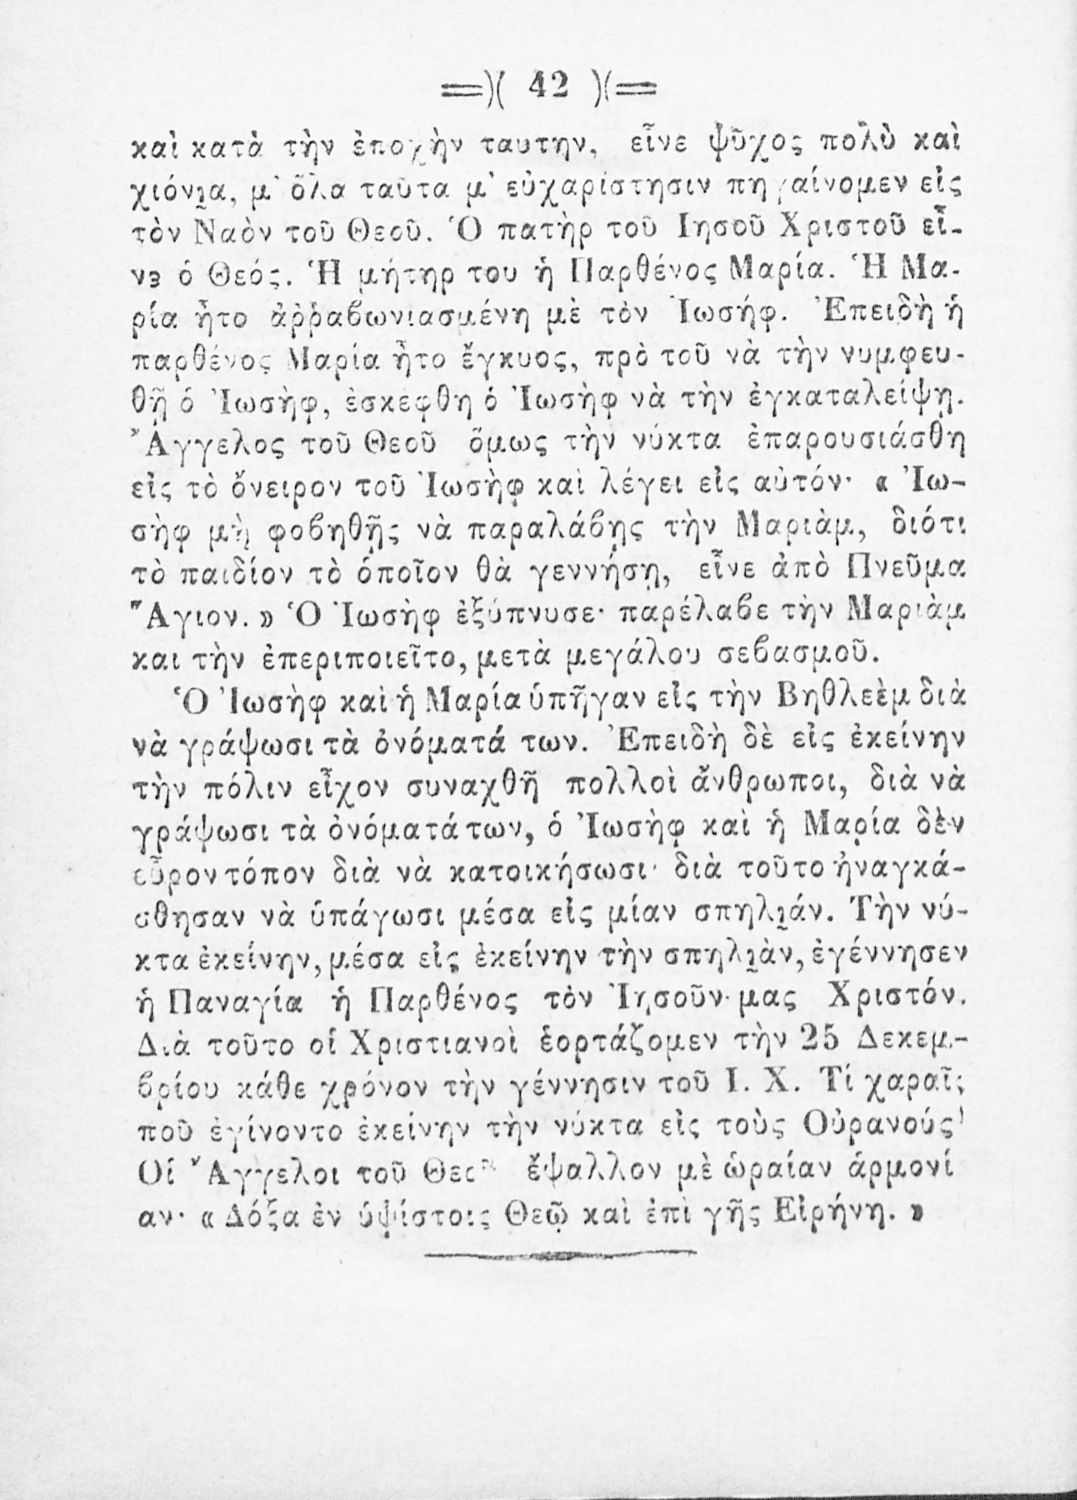 =)( 42 )(=
καὶ κατὰ τὴν ἐποχὴν ταυτην, εἶνε ψῦχος πολὺ καὶ
χιόνια, μ' ὅλα ταῦτα μ' εὐχαρίστησιν πηγαίνομεν εἰς
τὸν Ναὸν τοῦ Θεοῦ. Ὁ πατὴρ τοῦ Ιησοῦ Χριστοῦ εἶ-
νε ὁ Θεός. Ἡ μήτηρ του ἡ Παρθένος Μαρία. Ἡ Μα-
ρία ἦτο ἀῤῥαβωνιασμένη μὲ τὸν Ἰωσήφ. Ἐπειδὴ ἡ
παρθένος Μαρία ἦτο ἔγκυος, πρὸ τοῦ νὰ τὴν νυμφευ-
θῇ ὁ Ἰωσὴφ, ἐσκέφθη ὁ Ἰωσὴφ νὰ τὴν ἐγκαταλείψῃ.
Ἄγγελος τοῦ Θεοῦ ὅμως τὴν νύκτα ἐπαρουσιάσθη
εἰς τὸ ὄνειρον τοῦ Ἰωσὴφ καὶ λέγει εἰς αὐτόν· « Ἰω-
σὴφ μὴ φοβηθῇς νὰ παραλάβῃς τὴν Μαριὰμ, διότι
τὸ παιδίον τὸ ὁποῖον θὰ γεννήσῃ, εἶνε ἀπὸ Πνεῦμα
Ἅγιον. » Ὁ Ἰωσὴφ ἐξύπνυσε· παρέλαβε τὴν Μαριὰμ
και τὴν ἐπεριποιεῖτο, μετὰ μεγάλου σεβασμοῦ.
Ὁ Ἰωσὴφ καὶ ἡ Μαρία ὑπῆγαν εἰς τὴν Βηθλεὲμ διὰ
νὰ γράψωσι τὰ ὀνόματά των. Ἐπειδὴ δὲ εἰς ἐκείνην
τὴν πόλιν εἶχον συναχθῆ πολλοὶ ἄνθρωποι, διὰ νὰ
γράψωσι τὰ ὀνόματά των, ὁ Ἰωσὴφ καὶ ἡ Μαρία δὲν
εὗρον τόπον διὰ νὰ κατοικήσωσι· διὰ τοῦτο ἠναγκά-
σθησαν νὰ ὑπάγωσι μέσα εἰς μίαν σπηλιάν. Τὴν νύ-
κτα ἐκείνην, μέσα εἰς ἐκείνην τὴν σπηλιὰν, ἐγέννησεν
ἡ Παναγία ἡ Παρθένος τὸν Ἰησοῦν μας Χριστόν.
Διὰ τοῦτο οἱ Χριστιανοὶ ἑορτάζομεν τὴν 25 Δεκεμ-
βρίου κάθε χρόνον τὴν γέννησιν τοῦ Ι. Χ. Τί χαραῖς
ποῦ ἐγίνοντο ἐκείνην τὴν νύκτα εἰς τοὺς Οὐρανούς!
Οἱ Ἄγγελοι τοῦ Θεοῦ ἔψαλλον μὲ ὡραίαν ἁρμονί
αν· « Δόξα ἐν ὑψίστοις Θεῷ καὶ ἐπὶ γῆς Εἰρήνη. »